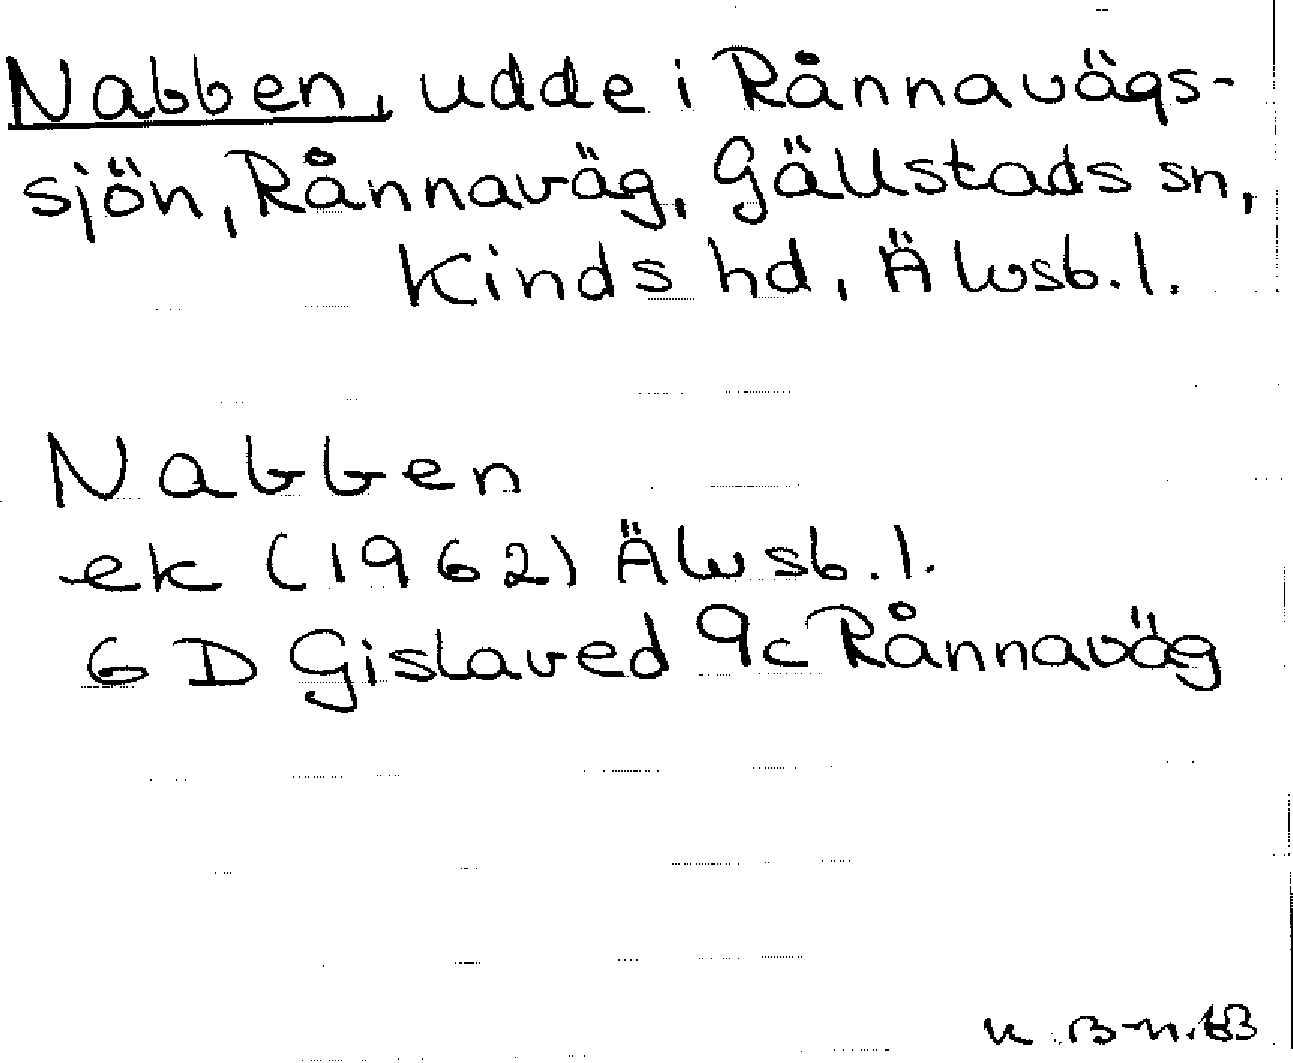 Nabben, udde i Rånnavägs-
sjön, Rånnaväg, Gällstads sn,
Kinds hd, Älvsb. l.
Nabben
ek (1962) Älvsb. l.
6 D Gislaved 9c Rånnaväg